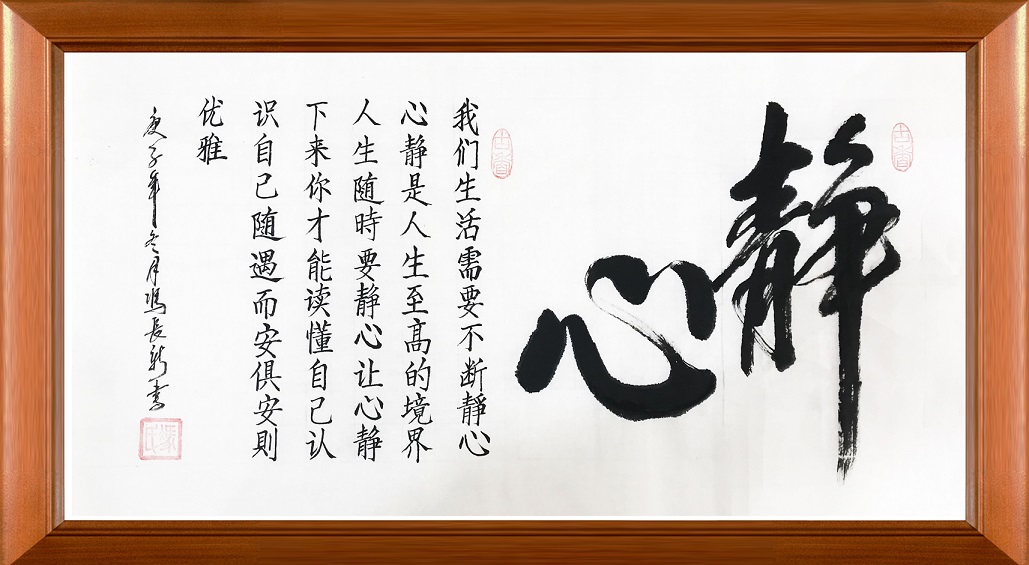 静心
我们生活需要不断靜心
心静是人生至髙的境界
人生随時要静心让心静
下来你才能读懂自己认
识自己随遇而安俱安則
优雅
庚子年冬月冯長新書